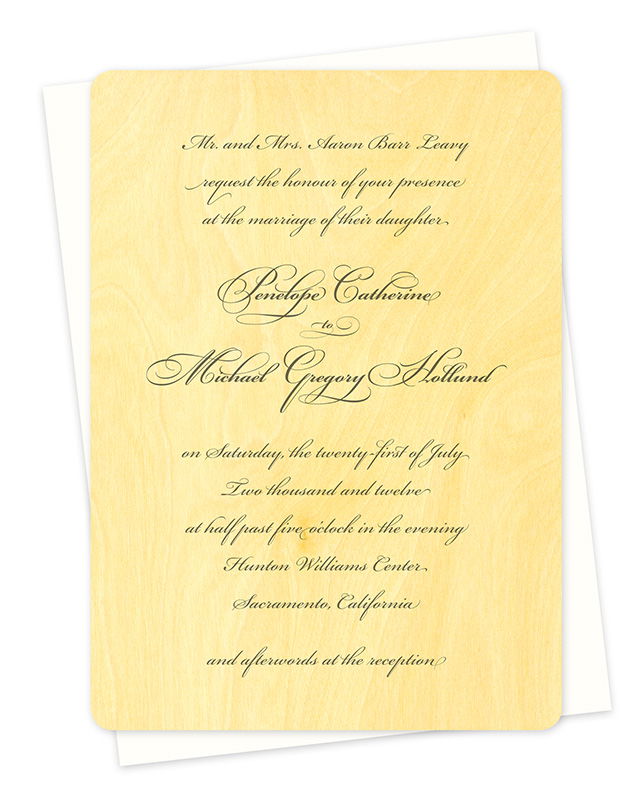 Mr. and Mrs. Aaron Barr Leavy
request the honour of your presence
at the marriage of their daughter
Penelope Catherine
to
Michael Gregory Hollund
on Saturday, the twenty-first of July
Two thousand and twelve
at half past five o'clock in the evening
Hunton Williams Center
Sacramento, California
and afterwords at the reception